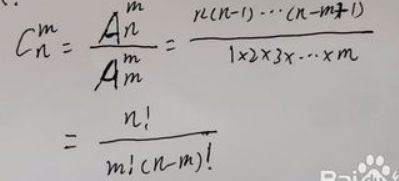 C_n^m = A_n^m / A_m^m = n(n-1)···(n-m+1) / 1×2×3×···×m
= n! / m!(n-m)!
Bai